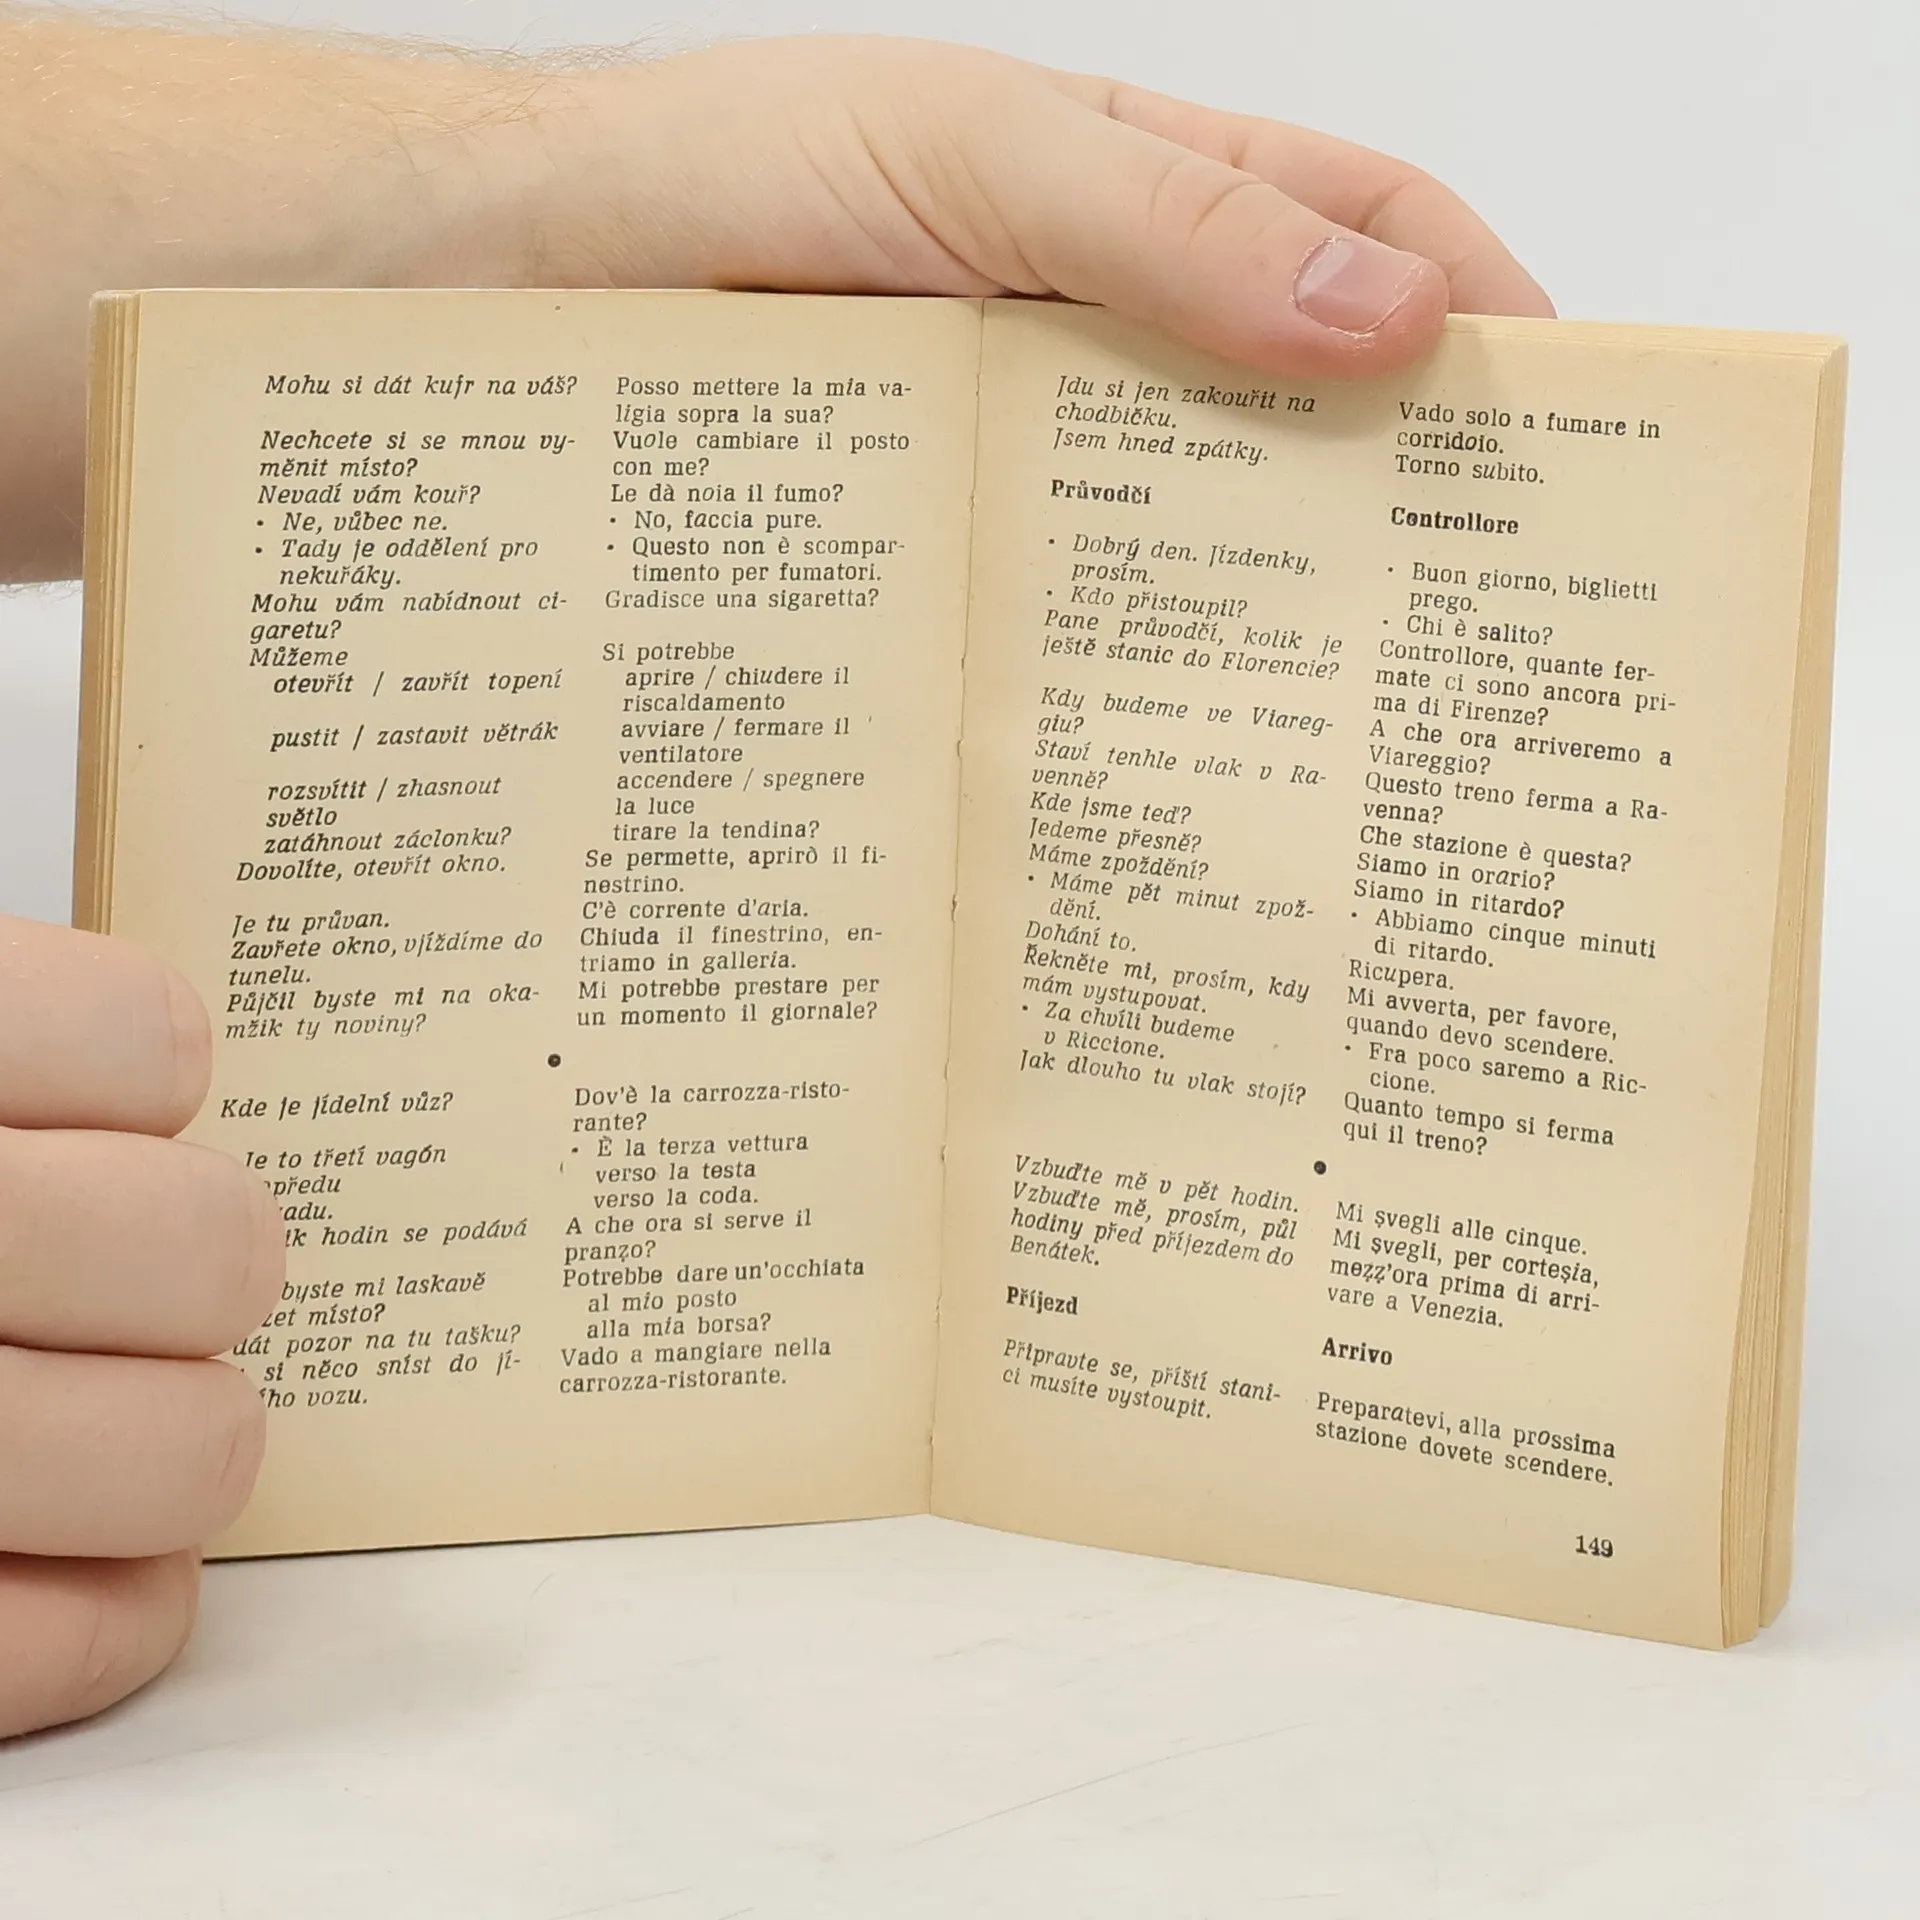 Mohu si dát kufr na váš?
Nechcete si se mnou vy-
měnit místo?
Nevadí vám kouř?
• Ne, vůbec ne.
• Tady je oddělení pro
nekuřáky.
Mohu vám nabídnout ci-
garetu?
Můžeme
otevřít / zavřít topení
pustit / zastavit větrák
rozsvítit / zhasnout
světlo
zatáhnout záclonku?
Dovolíte, otevřít okno.
Je tu průvan.
Zavřete okno, vjíždíme do
tunelu.
Půjčil byste mi na oka-
mžik ty noviny?
Kde je jídelní vůz?
Je to třetí vagón
hodin se podává
byste mi laskavě
místo?
dát pozor na tu tašku?
si něco sníst do jí-
vozu.
Posso mettere la mia va-
ligia sopra la sua?
Vuole cambiare il posto
con me?
Le dà noia il fumo?
• No, faccia pure.
• Questo non è scompar-
timento per fumatori.
Gradisce una sigaretta?
Si potrebbe
aprire / chiudere il
riscaldamento
avviare / fermare il
ventilatore
accendere / spegnere
la luce
tirare la tendina?
Se permette, aprirò il fi-
nestrino.
C'è corrente d'aria.
Chiuda il finestrino, en-
triamo in galleria.
Mi potrebbe prestare per
un momento il giornale?
●
Dov'è la carrozza-risto-
rante?
• È la terza vettura
verso la testa
verso la coda.
A che ora si serve il
pranẓo?
Potrebbe dare un'occhiata
al mio posto
alla mia borsa?
Vado a mangiare nella
carrozza-ristorante.
Jdu si jen zakouřit na
chodbičku.
Jsem hned zpátky.
Průvodčí
• Dobrý den. Jízdenky,
prosím.
• Kdo přistoupil?
Pane průvodčí, kolik je
ještě stanic do Florencie?
Kdy budeme ve Viareg-
giu?
Staví tenhle vlak v Ra-
venně?
Kde jsme teď?
Jedeme přesně?
Máme zpoždění?
• Máme pět minut zpož-
dění.
Dohání to.
Řekněte mi, prosím, kdy
mám vystupovat.
• Za chvíli budeme
v Riccione.
Jak dlouho tu vlak stojí?
Vzbuďte mě v pět hodin.
Vzbuďte mě, prosím, půl
hodiny před příjezdem do
Benátek.
Příjezd
Připravte se, příští stani-
ci musíte vystoupit.
Vado solo a fumare in
corridoio.
Torno subito.
Controllore
• Buon giorno, biglietti
prego.
• Chi è salito?
Controllore, quante fer-
mate ci sono ancora pri-
ma di Firenze?
A che ora arriveremo a
Viareggio?
Questo treno ferma a Ra-
venna?
Che stazione è questa?
Siamo in orario?
Siamo in ritardo?
• Abbiamo cinque minuti
di ritardo.
Ricupera.
Mi avverta, per favore,
quando devo scendere.
• Fra poco saremo a Ric-
cione.
Quanto tempo si ferma
qui il treno?
●
Mi ṣvegli alle cinque.
Mi ṣvegli, per corteṣia,
meẓẓ'ora prima di arri-
vare a Venezia.
Arrivo
Preparatevi, alla prossima
stazione dovete scendere.
149